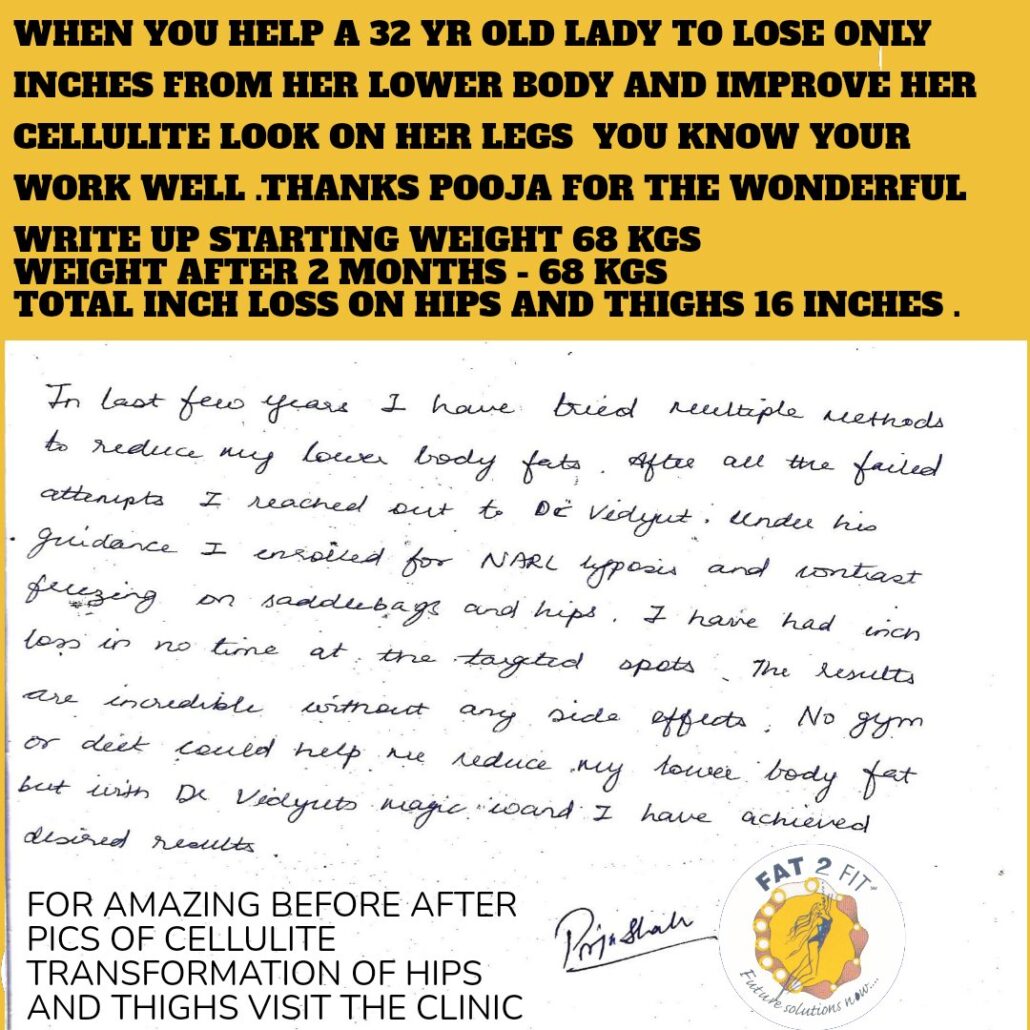 WHEN YOU HELP A 32 YR OLD LADY TO LOSE ONLY
INCHES FROM HER LOWER BODY AND IMPROVE HER
CELLULITE LOOK ON HER LEGS YOU KNOW YOUR
WORK WELL .THANKS POOJA FOR THE WONDERFUL
WRITE UP STARTING WEIGHT 68 KGS
WEIGHT AFTER 2 MONTHS - 68 KGS
TOTAL INCH LOSS ON HIPS AND THIGHS 16 INCHES .
In last few years I have tried multiple methods
to reduce my lower body fats. After all the failed
attempts I reached out to Dr Vidyut. Under his
guidance I enrolled for NARL lyposis and contrast
freezing on saddlebags and hips. I have had inch
loss in no time at the targeted spots. The results
are incredible without any side effects. No gym
or diet could help me reduce my lower body fat
but with Dr Vidyuts magic wand I have achieved
desired results.
FOR AMAZING BEFORE AFTER
PICS OF CELLULITE
TRANSFORMATION OF HIPS
AND THIGHS VISIT THE CLINIC
Shah
FAT 2 FIT
Future solutions now....